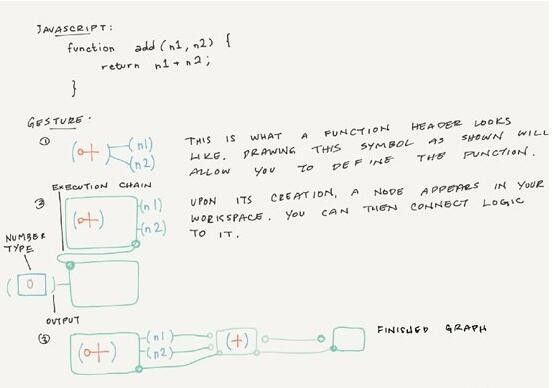 JAVASCRIPT:
function add (n1, n2) {
return n1 + n2;
}
GESTURE.
① (o+) (n1)
(n2)
THIS IS WHAT A FUNCTION HEADER LOOKS
LIKE. DRAWING THIS SYMBOL AS SHOWN WILL
ALLOW YOU TO DEFINE THE FUNCTION.
EXECUTION CHAIN
② (o+) (n1)
(n2)
UPON ITS CREATION, A NODE APPEARS IN YOUR
WORKSPACE. YOU CAN THEN CONNECT LOGIC
TO IT.
NUMBER
TYPE
(0)
OUTPUT
③ (o+) (n1)
(n2)
(+)
FINISHED GRAPH